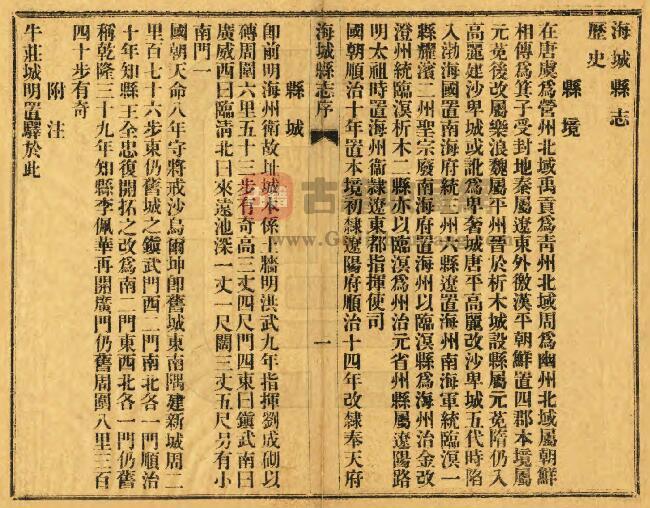 海城縣志
歷史
縣境
在唐虞爲營州北域禹貢爲靑州北域周爲幽州北域屬朝鮮
相傳爲箕子受封地秦屬遼東外徼漢平朝鮮置四郡本境屬
元菟後改屬樂浪魏屬平州晉於析木城設縣屬元菟隋仍入
高麗建沙卑城或訛爲卑奢城唐平高麗改沙卑城五代時陷
入渤海國置南海府統三州六縣遼置海州南海軍統臨溟一
縣耀濱二州聖宗廢南海府置海州以臨溟縣爲海州治金改
澄州統臨溟析木二縣亦以臨溟爲州治元省州縣屬遼陽路
明太祖時置海州衞隸遼東都指揮使司
國朝順治十年置本境初隸遼陽府順治十四年改隸奉天府
海城縣志序
一
縣城
卽前明海州衞故址城本係土牆明洪武九年指揮劉成砌以
磚周圍六里五十三步有奇高三丈四尺門四東曰鎭武南曰
廣威西曰臨淸北曰來遠池深一丈一尺闊三丈五尺另有小
南門一
國朝天命八年守將戒沙烏爾坤卽舊城東南隅建新城周二
里百七十六步東仍舊城之鎭武門西二門南北各一門順治
十年知縣王全忠復開拓之改爲南二門東西北各一門仍舊
稱乾隆三十九年知縣李佩華再開廣門仍舊周圍八里三百
四十步有奇
附注
牛莊城明置驛於此